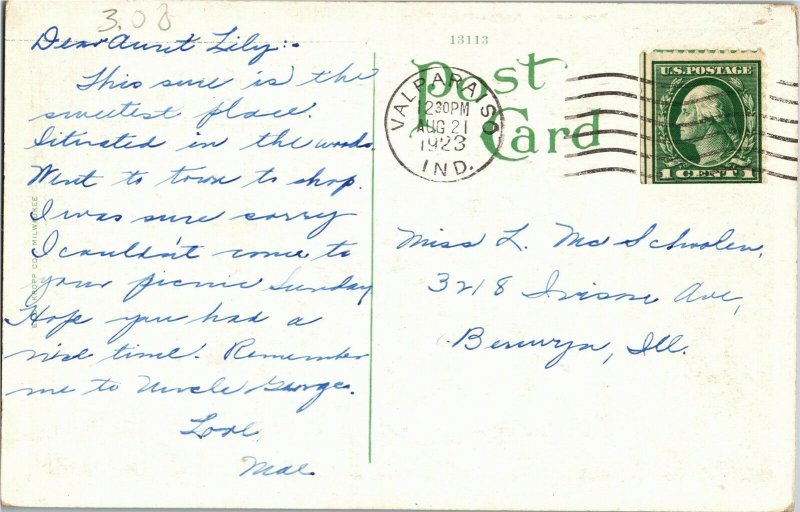 3.08
Dear Aunt Lily:-
This sure is the
sweetest place.
Situated in the woods.
Went to town to shop.
I was sure sorry
I couldn't come to
your picnic Sunday
Hope you had a
nice time. Remember
me to Uncle George.
Love,
Mae
13113
Post
Card
VALPARAISO
12 30 PM
AUG 21
1923
IND.
U.S. POSTAGE
1 CENT 1
Miss L. Mc
3218 Ave,
Berwyn, Ill.
KROPP CO. MILWAUKEE